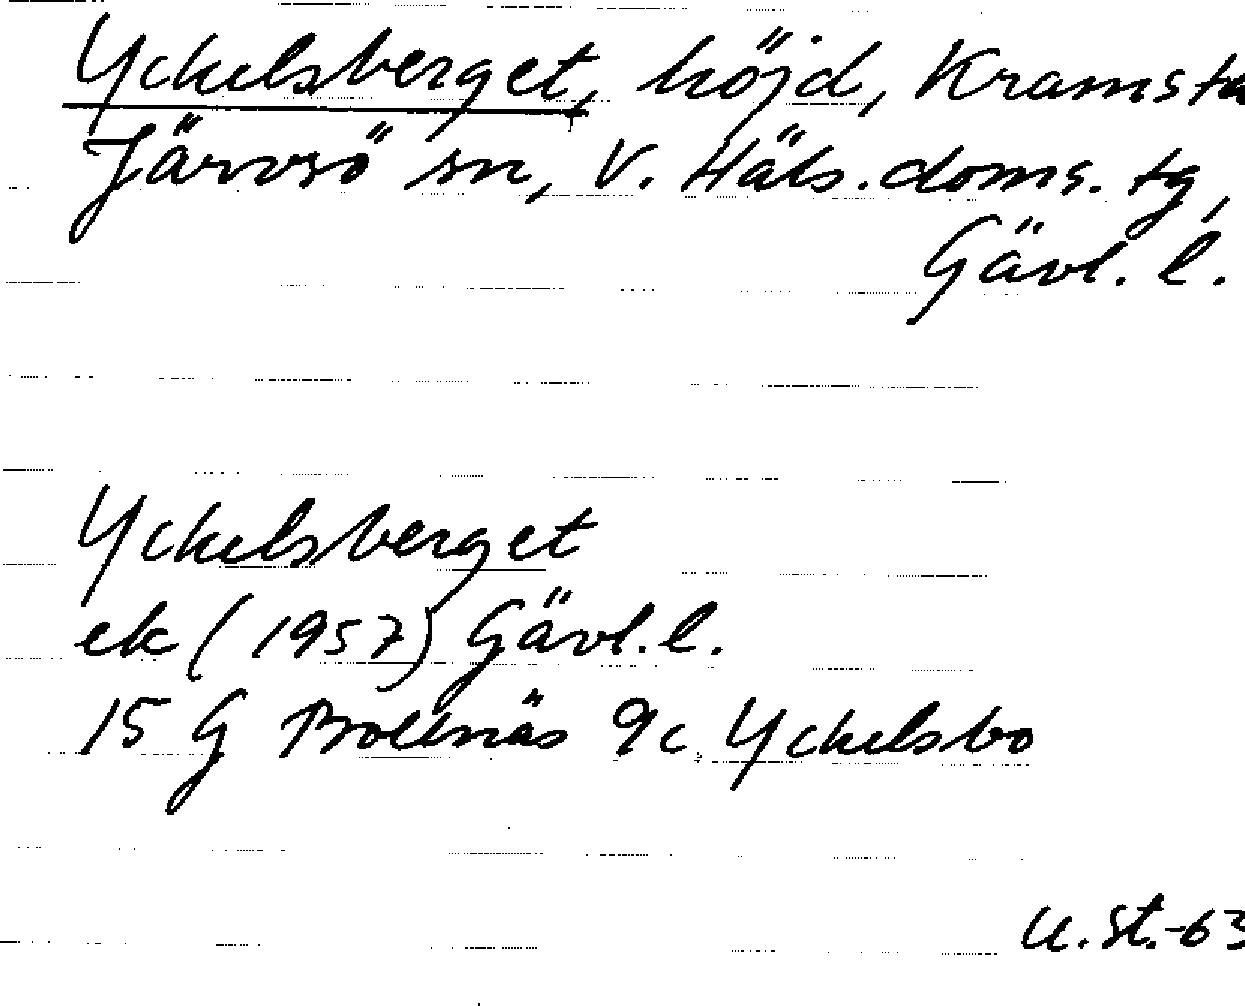 Yckelsberget, höjd, Kramsta
Järvsö sn, V. Häls. doms. tg,
Gävl. l.
Yckelsberget
ek (1957) Gävl. l.
15 G Bollnäs 9c Yckelsbo
U. St. -63